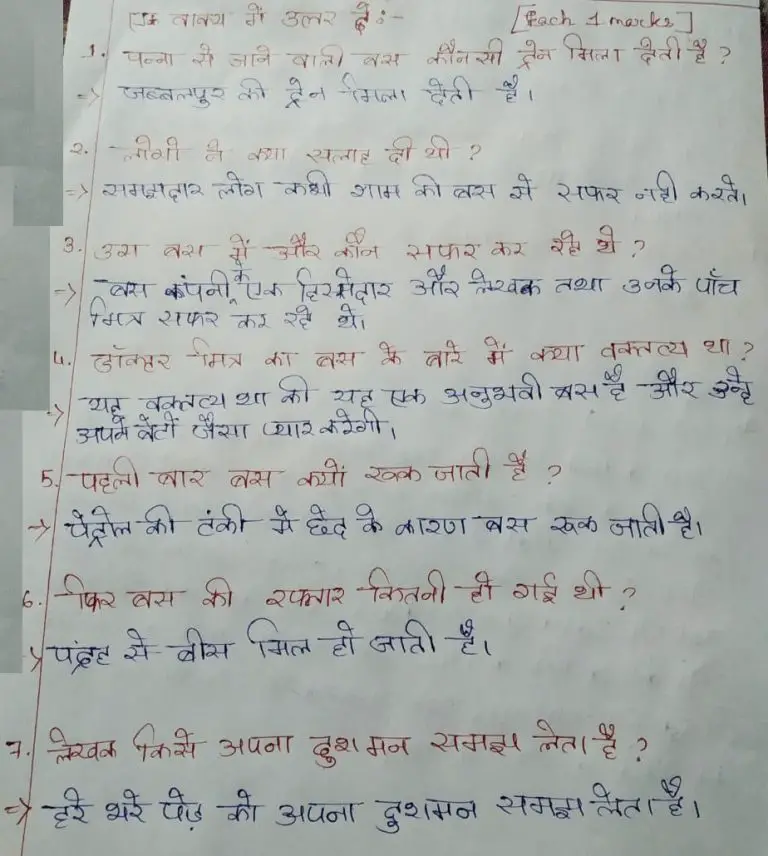 एक वाक्य में उत्तर दे :- [Each 1 marks]
1. पन्ना से जाने वाली बस कौनसी ट्रेन मिला देती है ?
=> जब्बलपुर की ट्रेन मिला देती है।
2. लोगो ने क्या सलाह दी थी ?
=> समझदार लोग कभी शाम की बस से सफर नही करते।
3. उस बस में और कौन सफर कर रहे थे ?
-> बस कंपनी के एक हिस्सेदार और लेखक तथा उनके पाँच
मित्र सफर कर रहे थे।
4. डॉक्टर मित्र का बस के बारे में क्या वक्तव्य था ?
-> यह वक्तव्य था की यह एक अनुभवी बस है और उन्हे
अपने बेटों जैसा प्यार करेगी।
5. पहली बार बस क्यों रूक जाती है ?
-> पेट्रोल की टंकी मे छेद के कारण बस रूक जाती है।
6. फिर बस की रफ्तार कितनी हो गई थी ?
-> पंद्रह से बीस मिल हो जाती है।
7. लेखक किसे अपना दुशमन समझ लेता है ?
=> हरे भरे पेड़ को अपना दुशमन समझ लेता है।